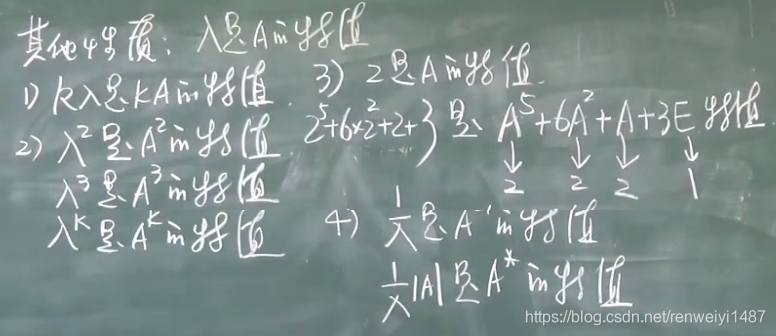 其他性质: λ是A的特值
1) kλ是kA的特值.
2) λ²是A²的特值
λ³是A³的特值
λᵏ是Aᵏ的特值
3) 2是A的特值.
2⁵+6×2²+2+3是A⁵+6A²+A+3E特值.
↓ ↓ ↓ ↓
2 2 2 1
4) 1/λ是A⁻¹的特值
1/λ|A|是A*的特值
https://blog.csdn.net/renweiyi1487